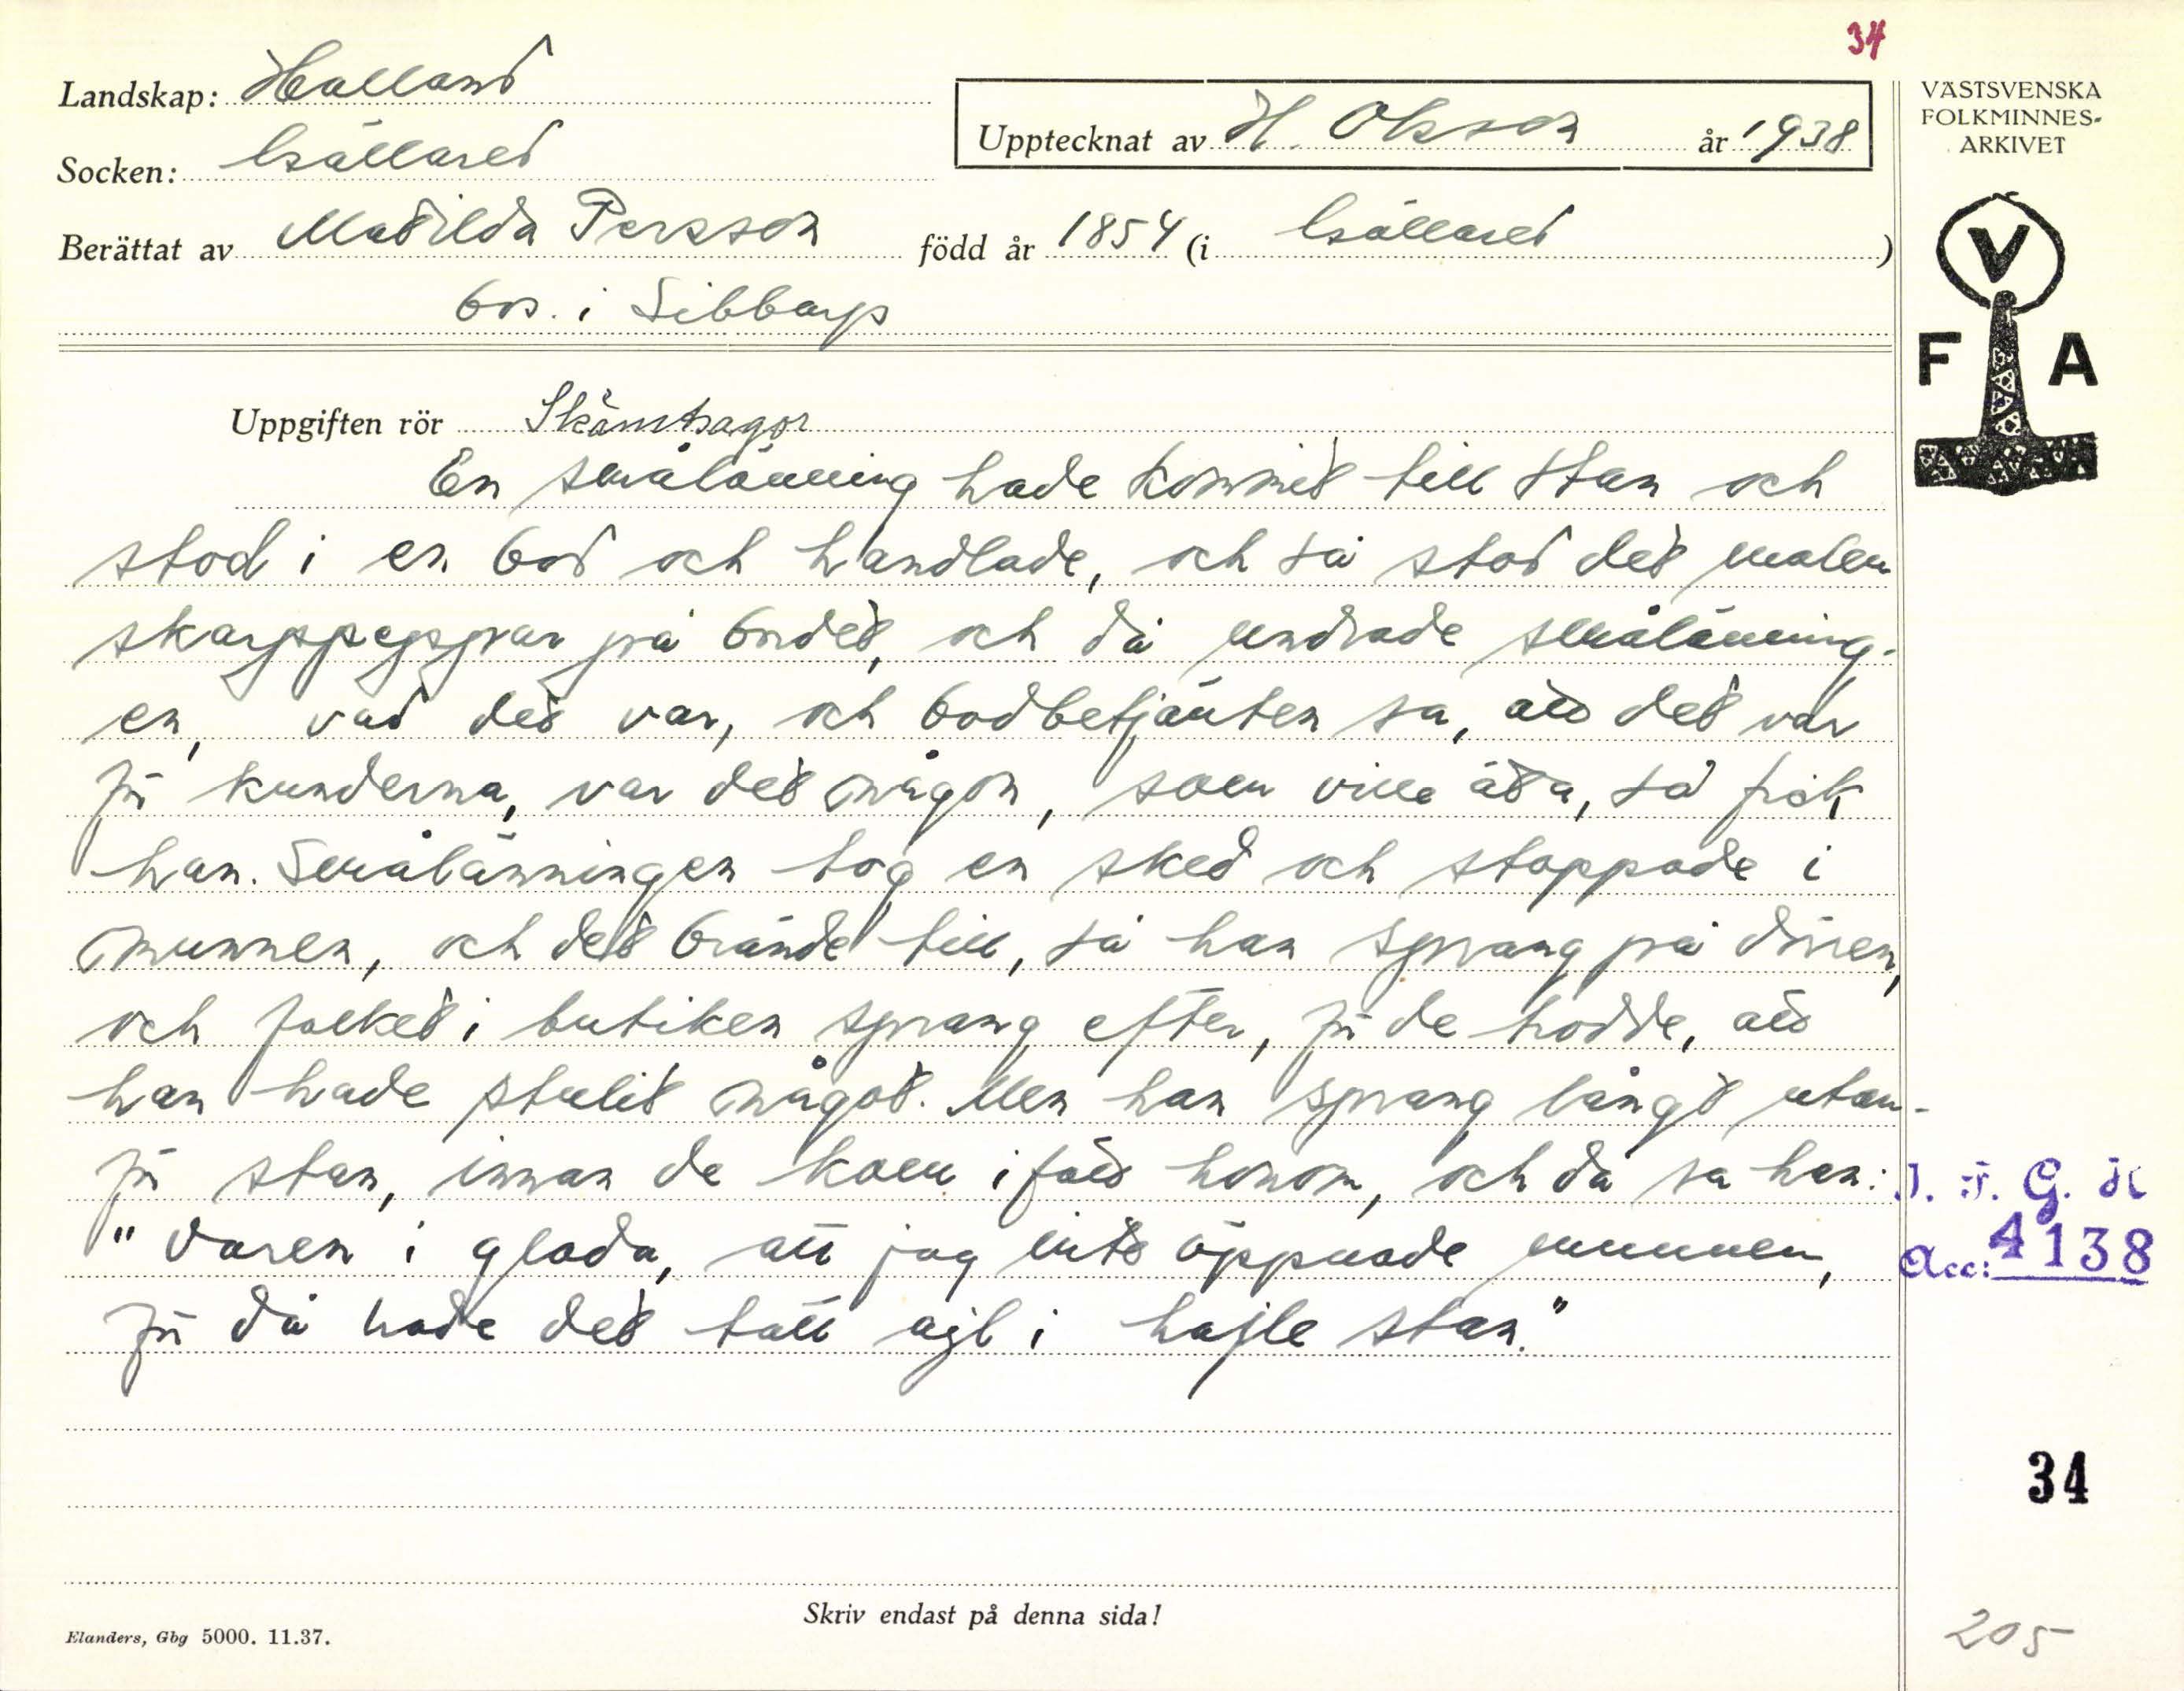 34
Landskap: Halland
Socken: Källared
Upptecknat av H. Olsson år 1938
VÄSTSVENSKA
FOLKMINNES-
ARKIVET
Berättat av Matilda Persson född år 1854 (i Källared)
bos. i Sibbarp
V
F A
Uppgiften rör Skämtsagor
En smålänning hade kommit till stan och
stod i en bod och handlade, och så stod det malen
skarppeppar på bordet, och då undrade smålänning-
en, vad det var, och bodbetjänten sa, att det var
för kunderna, var det någon, som ville äta, så fick
han. Smålänningen tog en sked och stoppade i
munnen, och det brände till, så han sprang på dörren,
och folket i butiken sprang efter, för de trodde, att
han hade stulit något. Men han sprang långt utan-
för stan, innan de kom ifatt honom, och då sa han:
"Varen i glada, att jag inte öppnade munnen,
för då hade det tatt ajl i hajle stan."
I. F. G. H
Acc: 4138
34
Skriv endast på denna sida!
Elanders, Gbg 5000. 11.37.
205